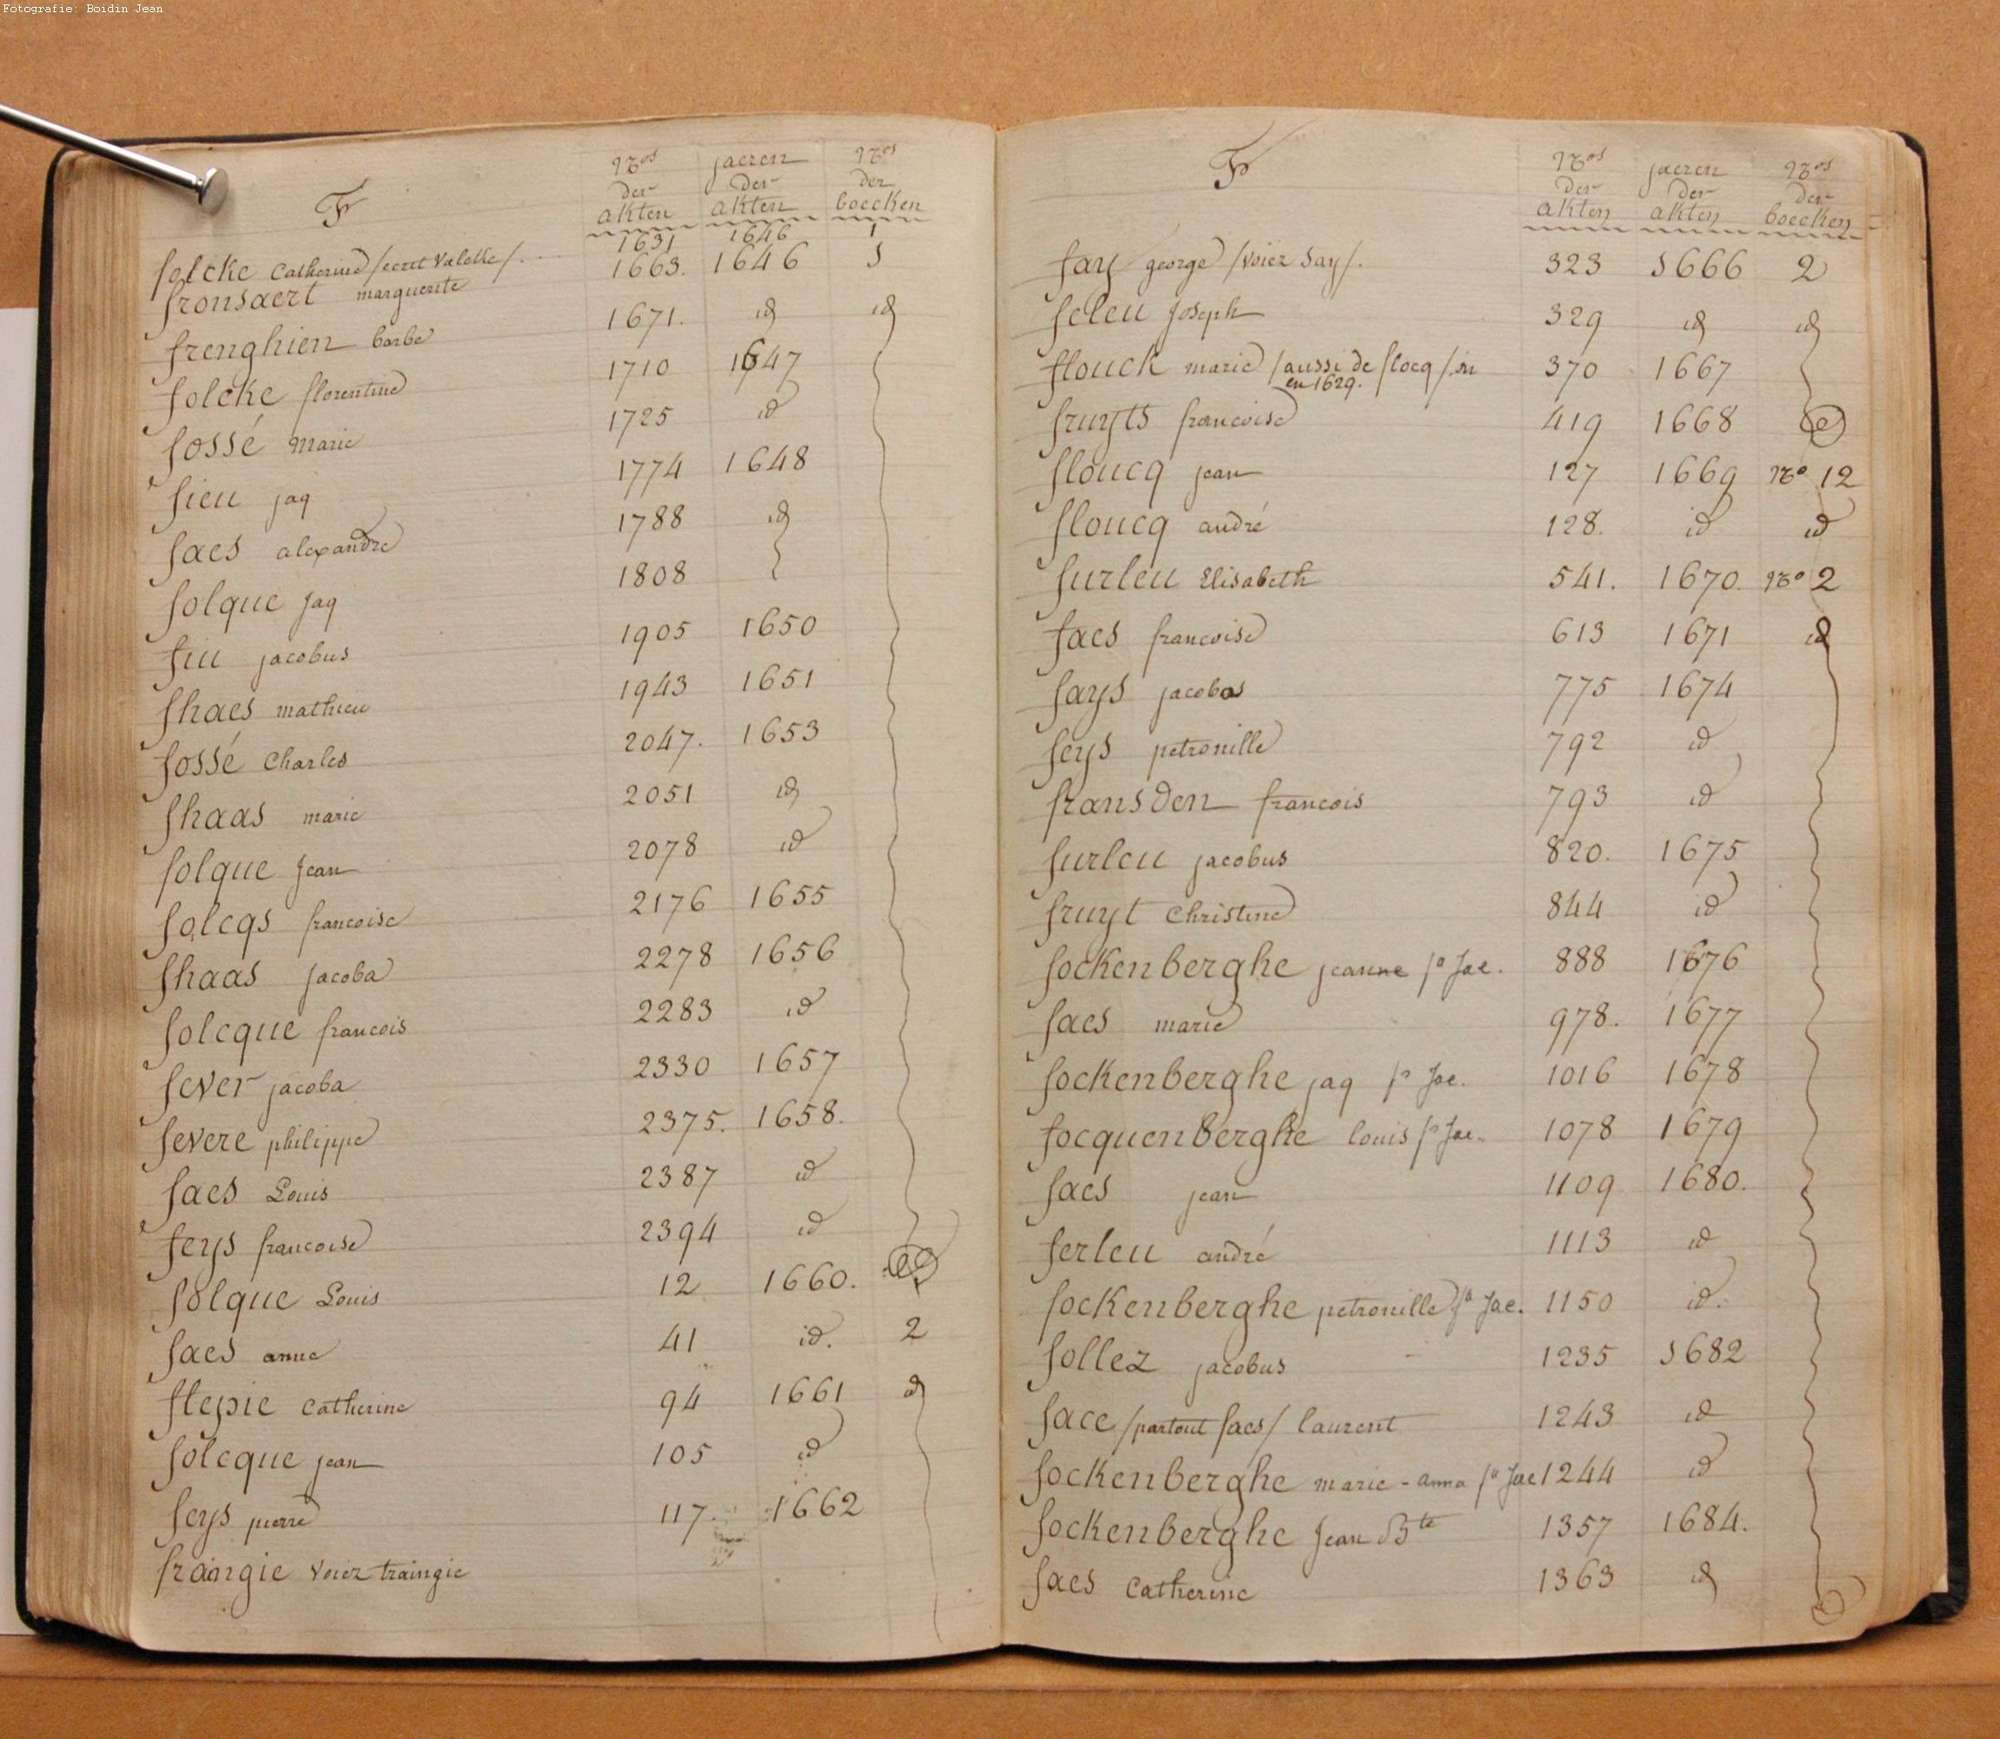 Fotografie: Boidin Jean
F
Nos der akten jaeren der akten Nos der boecken
folcke Catherine /ecrit Valcke/. 1631 1646 1
fronsaert marguerite 1663. 1646 1
frenghien barbe 1671. id id
folcke florentine 1710 1647
fossé Marie 1725 id
fieu jaq 1774 1648
faes alexandre 1788 id
folque jaq 1808
fiu jacobus 1905 1650
fhaes mathieu 1943 1651
fossé Charles 2047. 1653
fhaas marie 2051 id
folque Jean 2078 id
folcqs francoise 2176 1655
fhaas jacoba 2278 1656
folcque francois 2283 id
fever jacoba 2330 1657
fevere philippe 2375. 1658.
faes Louis 2387 id
feys francoise 2394 id
folque Louis 12 1660.
faes anne 41 id. 2
flepie Catherine 94 1661 id
folcque jean 105 id
feys pierre 117. 1662
fraingie voiez traingie
F
Nos der akten jaeren der akten Nos der boecken
fay george /voiez Say/. 323 1666 2
feleu Joseph 329 id id
flouck marie /aussi de flocq/. 370 1667
en 1629.
fruyts francoise 419 1668
floucq jean 127 1669 No 12
floucq andré 128. id id
furleu Elisabeth 541. 1670. No 2
faes francoise 613 1671 id
fays jacobus 775 1674
feys petronille 792 id
fransden francois 793 id
furleu jacobus 820. 1675
fruyt Christine 844 id
fockenberghe jeanne fa Jae. 888 1676
faes marie 978. 1677
fockenberghe jaq fs Jae. 1016 1678
focquenberghe louis fs Jae. 1078 1679
faes jean 1109 1680.
ferleu andré 1113 id
fockenberghe petronille fa Jae. 1150 id.
follez jacobus 1235 1682
face /partout faes/ laurent 1243 id
fockenberghe marie-anna fa Jae 1244 id
fockenberghe Jean Bte 1357 1684.
faes Catherine 1363 id